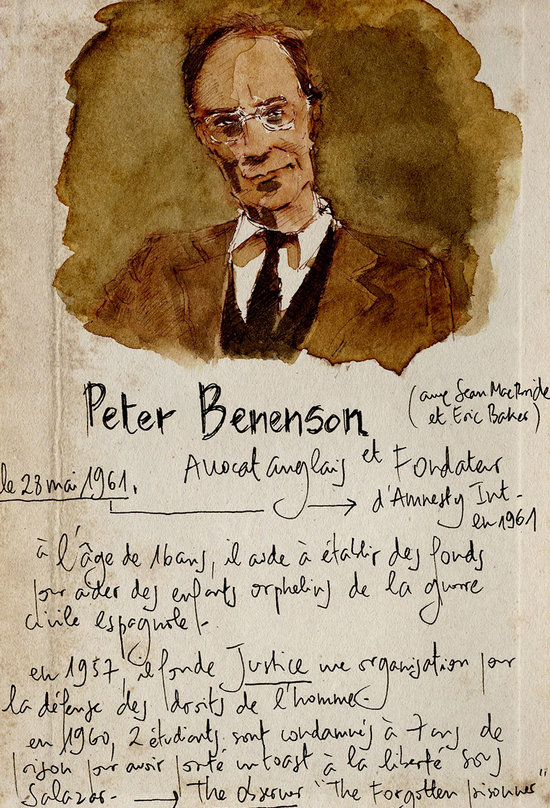 Peter Benenson
(avec Sean MacBride
et Eric Baker)
le 28 mai 1961.
Avocat anglais et Fondateur
d'Amnesty Int-
en 1961
à l'âge de 16 ans, il aide à établir des fonds
pour aider des enfants orphelins de la guerre
civile espagnole.
en 1957, il fonde Justice une organisation pour
la défense des droits de l'homme.
en 1960, 2 étudiants sont condamnés à 7 ans de
prison pour avoir porté un toast à la liberté sous
Salazar. → The observer "The Forgotten prisonner"